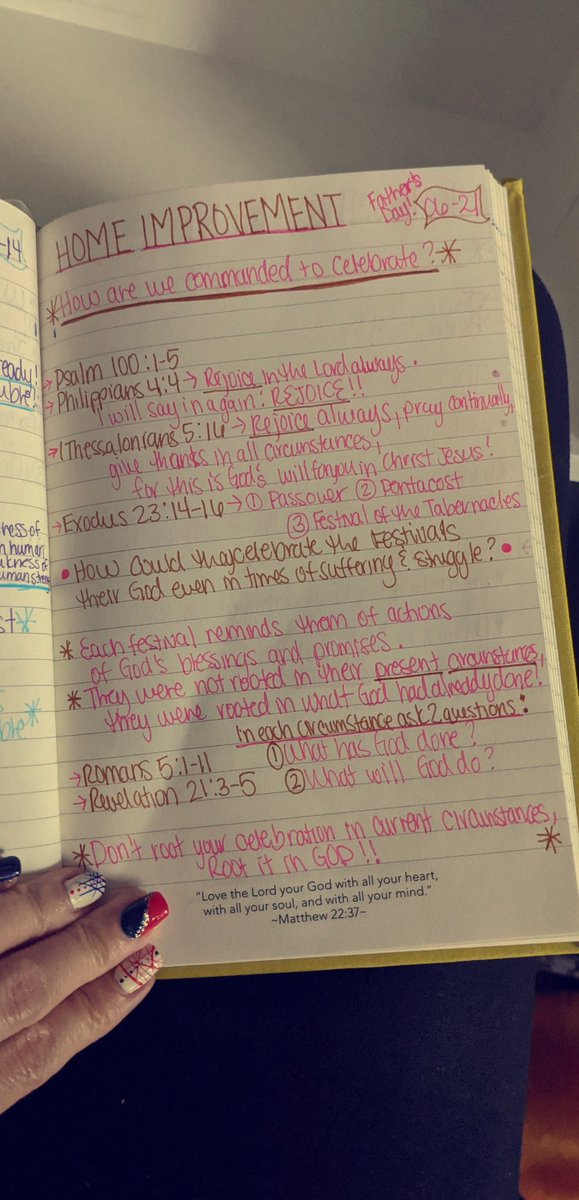 HOME IMPROVEMENT
Father's
Day!
06-21
*How are we commanded to celebrate?*
→Psalm 100:1-5
→Philippians 4:4→ Rejoice in the Lord always.
I will say in again: REJOICE!!
→1Thessalonians 5:16→ Rejoice always, pray continually,
give thanks in all circumstances,
for this is God's will for you in Christ Jesus!
→Exodus 23:14-16→① Passover ② Pentacost
③ Festival of the Tabernacles
• How could they celebrate the Festivals
their God even in times of suffering & struggle? •
* Each festival reminds them of actions
of God's blessings and promises.
* They were not rooted in their present circumstances,
they were rooted in what God had already done!
In each circumstance ask 2 questions:
→Romans 5:1-11 ① What has God done?
→Revelation 21:3-5 ② What will God do?
*Don't root your celebration in current circumstances,
Root it in GOD!! *
"Love the Lord your God with all your heart,
with all your soul, and with all your mind."
~Matthew 22:37~
-14
ready!
uble?
ness of
human
akness of
uman stren
st *
ble*